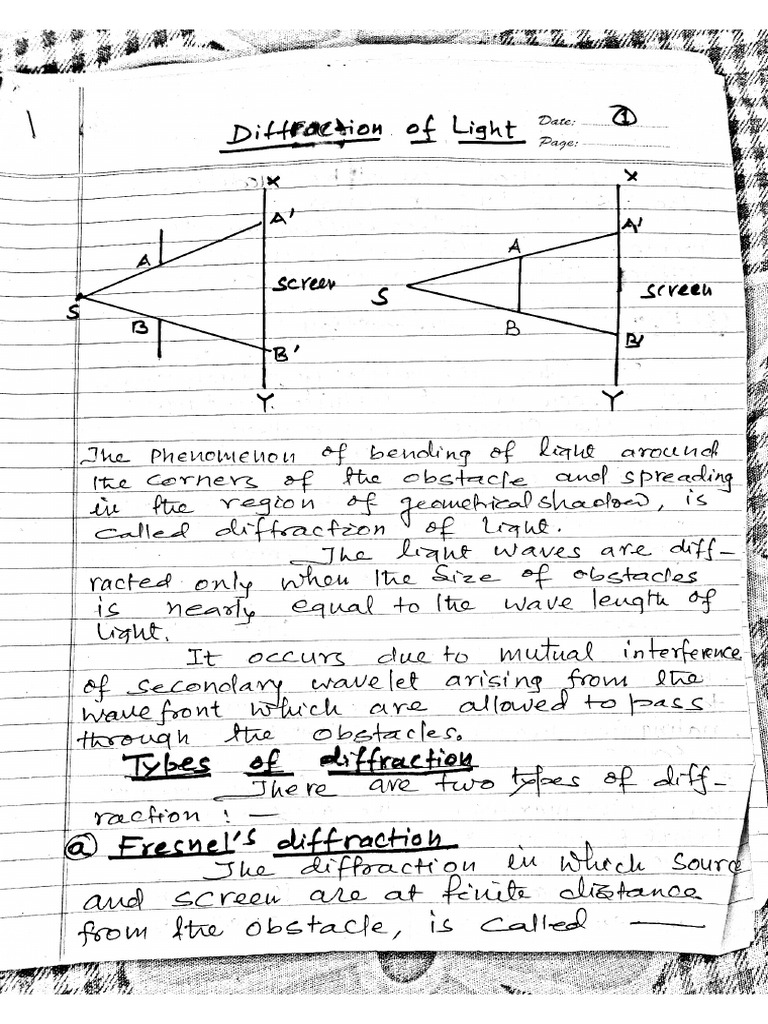 1
Diffraction of Light
Date: ①
Page:
X
A'
A
Screen
S
B
B'
Y
X
A'
A
Screen
S
B
B'
Y
The Phenomenon of bending of light around
the corners of the obstacle and spreading
in the region of geometrical shadow, is
called diffraction of light.
The light waves are diff-
racted only when the size of obstacles
is nearly equal to the wave length of
light.
It occurs due to mutual interference
of secondary wavelet arising from the
wavefront which are allowed to pass
through the obstacles.
Types of diffraction
There are two types of diff-
raction : —
ⓐ Fresnel's diffraction
The diffraction in which source
and screen are at finite distance
from the obstacle, is called ——